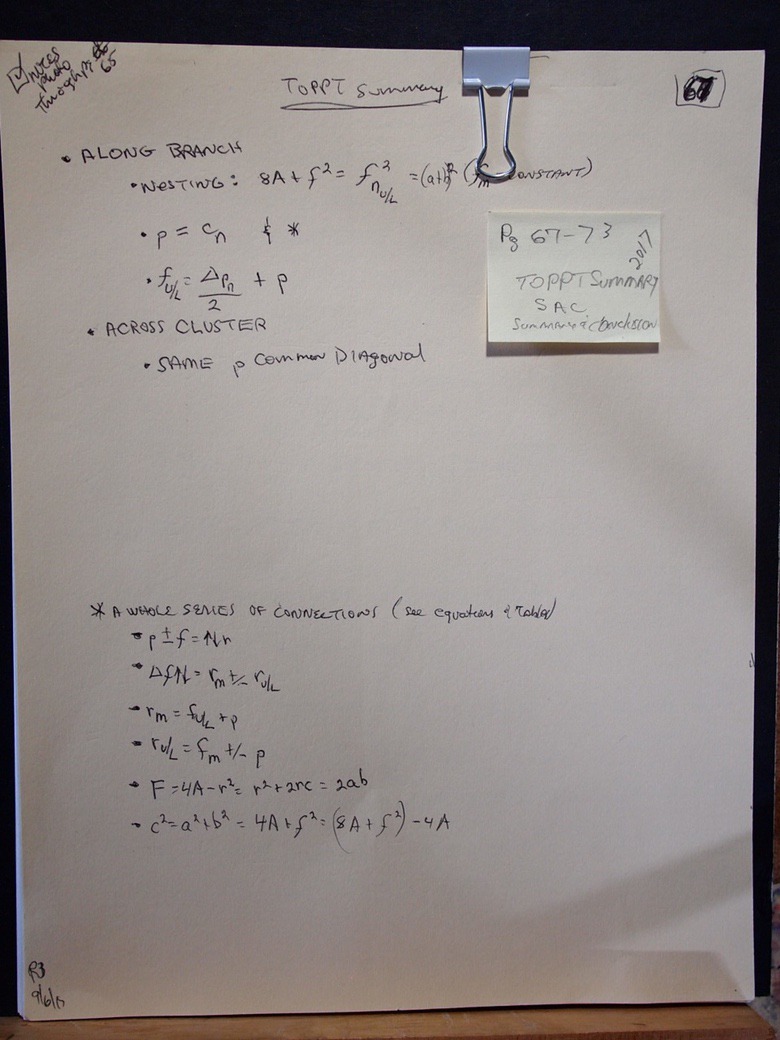 ✓ notes
photo
through pg 65
TOPPT Summary
67
• ALONG BRANCH
• NESTING: 8A + f² = f²nU/L = (a+b)² (fm CONSTANT)
• p = cn & *
• fU/L = Δpn/2 + p
• ACROSS CLUSTER
• SAME p Common DIAgonal
Pg 67-73
2017
TOPPT SUMMARY
SAC
Summary & Conclusion
* A WHOLE SERIES OF CONNECTIONS (see equations & Tables)
• p ± f = ↑↓r
• Δf↑↓ = rm +/- rU/L
• rm = fU/L + p
• rU/L = fm +/- p
• F = 4A - r² = r² + 2rc = 2ab
• c² = a² + b² = 4A + f² = (8A + f²) - 4A
9/6/17